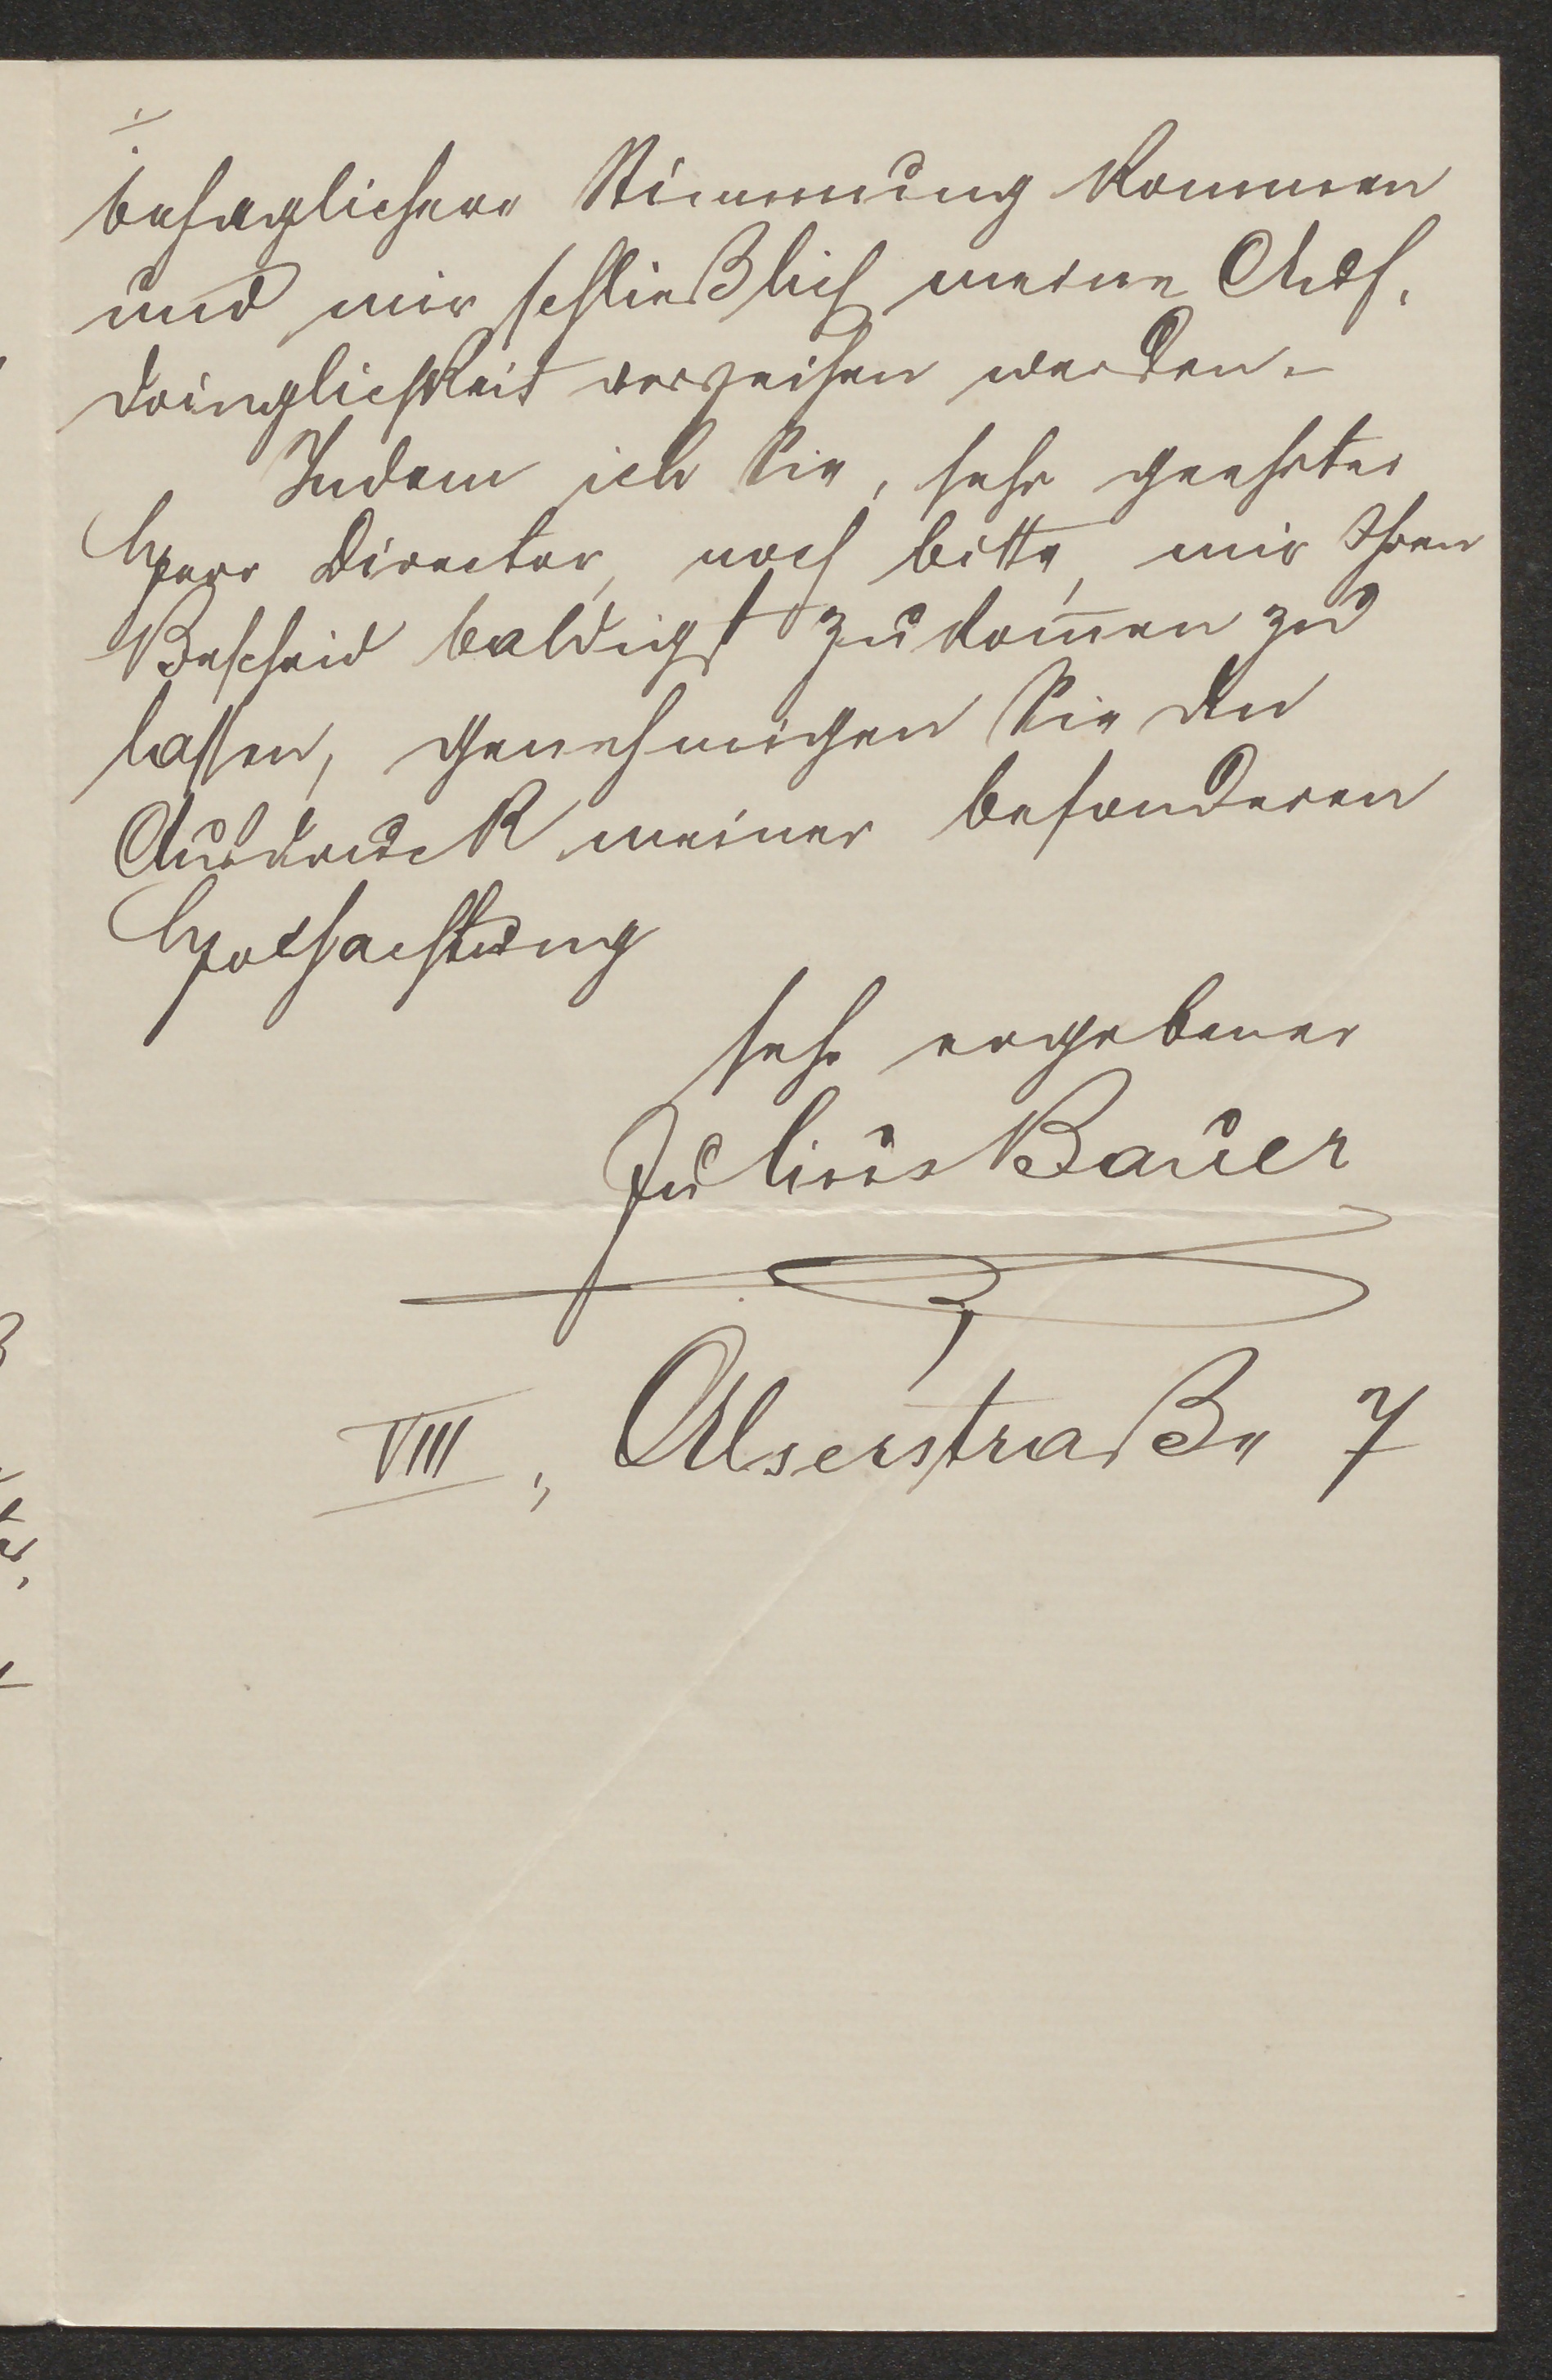 behaglichere Stimmung kommen
und mir schließlich meine Auf-
dringlichkeit verzeihen werden. –
Indem ich Sie, sehr geehrter
Herr Director, noch bitte, mir Ihren
Bescheid baldigst zukom̅en zu
lassen, genehmigen Sie den
Ausdruck meiner besonderen
Hochachtung
sehr ergebener
Julius Bauer
VIII, Alserstraße 7